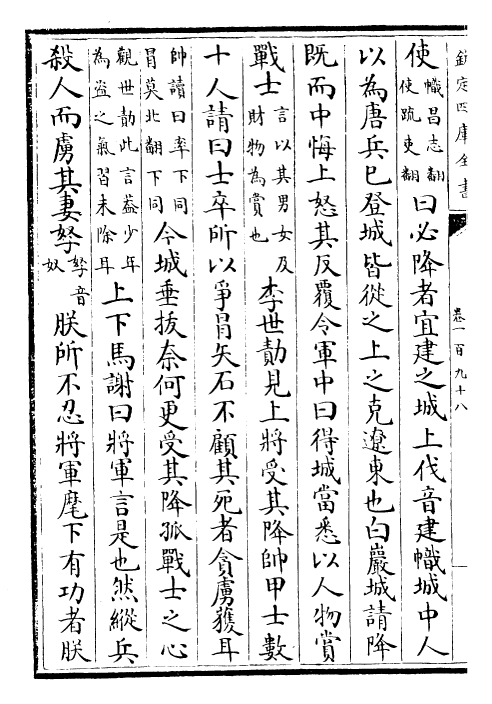 欽定四庫全書
卷一百九十八
使幟昌志翻使疏吏翻曰必降者宜建之城上代音建幟城中人
以為唐兵已登城皆從之上之克遼東也白巖城請降
既而中悔上怒其反覆令軍中曰得城當悉以人物賞
戰士言以其男女及財物為賞也李世勣見上將受其降帥甲士數
十人請曰士卒所以爭冒矢石不顧其死者貪虜獲耳
帥讀曰率下同冒莫北翻下同今城垂拔奈何更受其降孤戰士之心
觀世勣此言葢少年為盜之氣習未除耳上下馬謝曰將軍言是也然縱兵
殺人而虜其妻孥孥音奴朕所不忍將軍麾下有功者朕